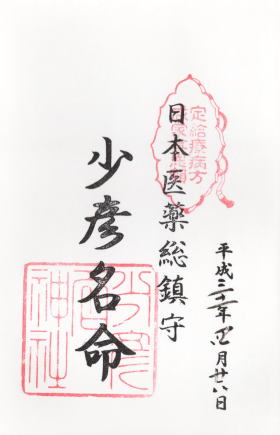 定給療病方
日本医薬総鎮守
少彦名命
少彦名神社
平成 年四月廿 日